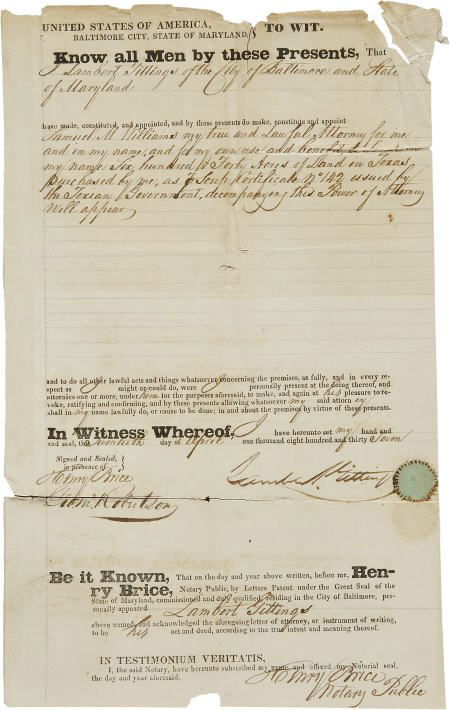 UNITED STATES OF AMERICA,
BALTIMORE CITY, STATE OF MARYLAND, } TO WIT.
Know all Men by these Presents, That
I Lambert Gittings of the City of Baltimore and State
of Maryland
have made, constituted, and appointed, and by these presents do make, constitute and appoint
Samuel M Williams my true and Lawful Attorney for me
and in my name, and for my own use and benefit
my name Six hundred & Forty Acres of Land in Texas
purchased by me, as Scrip Certificate No 142 issued by
the Texian Government, accompanying this Power of Attorney
Will appear
and to do all other lawful acts and things whatsoever concerning the premises, as fully, and in every re-
spect as I might or could do, were I personally present at the doing thereof, and
attornies one or more, under him for the purposes aforesaid, to make, and again at his pleasure to re-
voke, ratifying and confirming, and by these presents allowing whatsoever my said attorn ey
shall in my name lawfully do, or cause to be done, in and about the premises by virtue of these presents.
In Witness Whereof, I have hereunto set my hand and
and seal, the twentieth day of April one thousand eight hundred and thirty Seven
Signed and Sealed,
in presence of }
Henry Brice
Robertson
Lambert Gittings
Be it Known, That on the day and year above written, before me, Hen-
ry Brice, Notary Public, by Letters Patent under the Great Seal of the
State of Maryland, commissioned and duly qualified, residing in the City of Baltimore, per-
sonally appeared Lambert Gittings
above named, and acknowledged the aforegoing letter of attorney, or instrument of writing,
to be his act and deed, according to the true intent and meaning thereof.
IN TESTIMONIUM VERITATIS,
I, the said Notary, have hereunto subscribed my name, and affixed my Notarial seal,
the day and year aforesaid.
Henry Brice
Notary Public